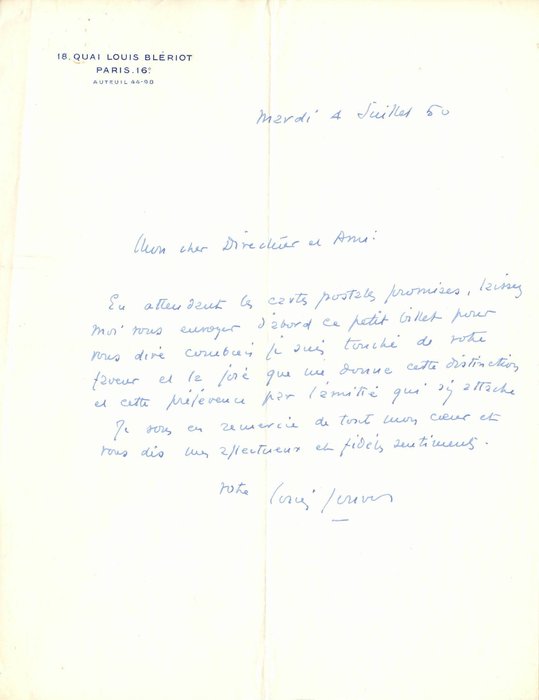 18, QUAI LOUIS BLÉRIOT
PARIS. 16e
AUTEUIL 44-98
Mardi 4 Juillet 50
Mon cher Directeur et Ami:
En attendant les cartes postales promises, laissez
moi vous envoyer d'abord ce petit billet pour
vous dire combien je suis touché de votre
faveur et la joie que me donne cette distinction
et cette préférence par l'amitié qui s'y attache
Je vous en remercie de tout mon cœur et
vous dis mes affectueux et fidèles sentiments.
votre Louis Jouvet